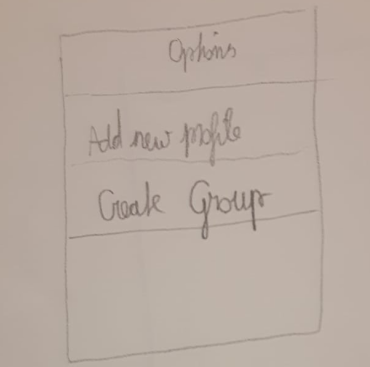 Options
Add new profile
Create Group